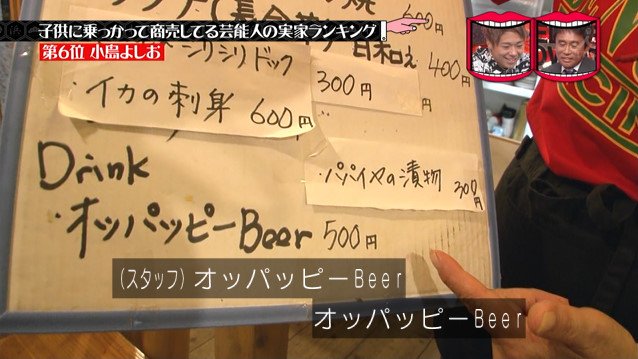 子供に乗っかって商売してる芸能人の実家ランキング
第6位 小島よしお
600円
シリシリドック
300円
400円
・イカの刺身 600円
Drink
・パパイヤの漬物 300円
・オッパッピーBeer 500円
(スタッフ)オッパッピーBeer
オッパッピーBeer